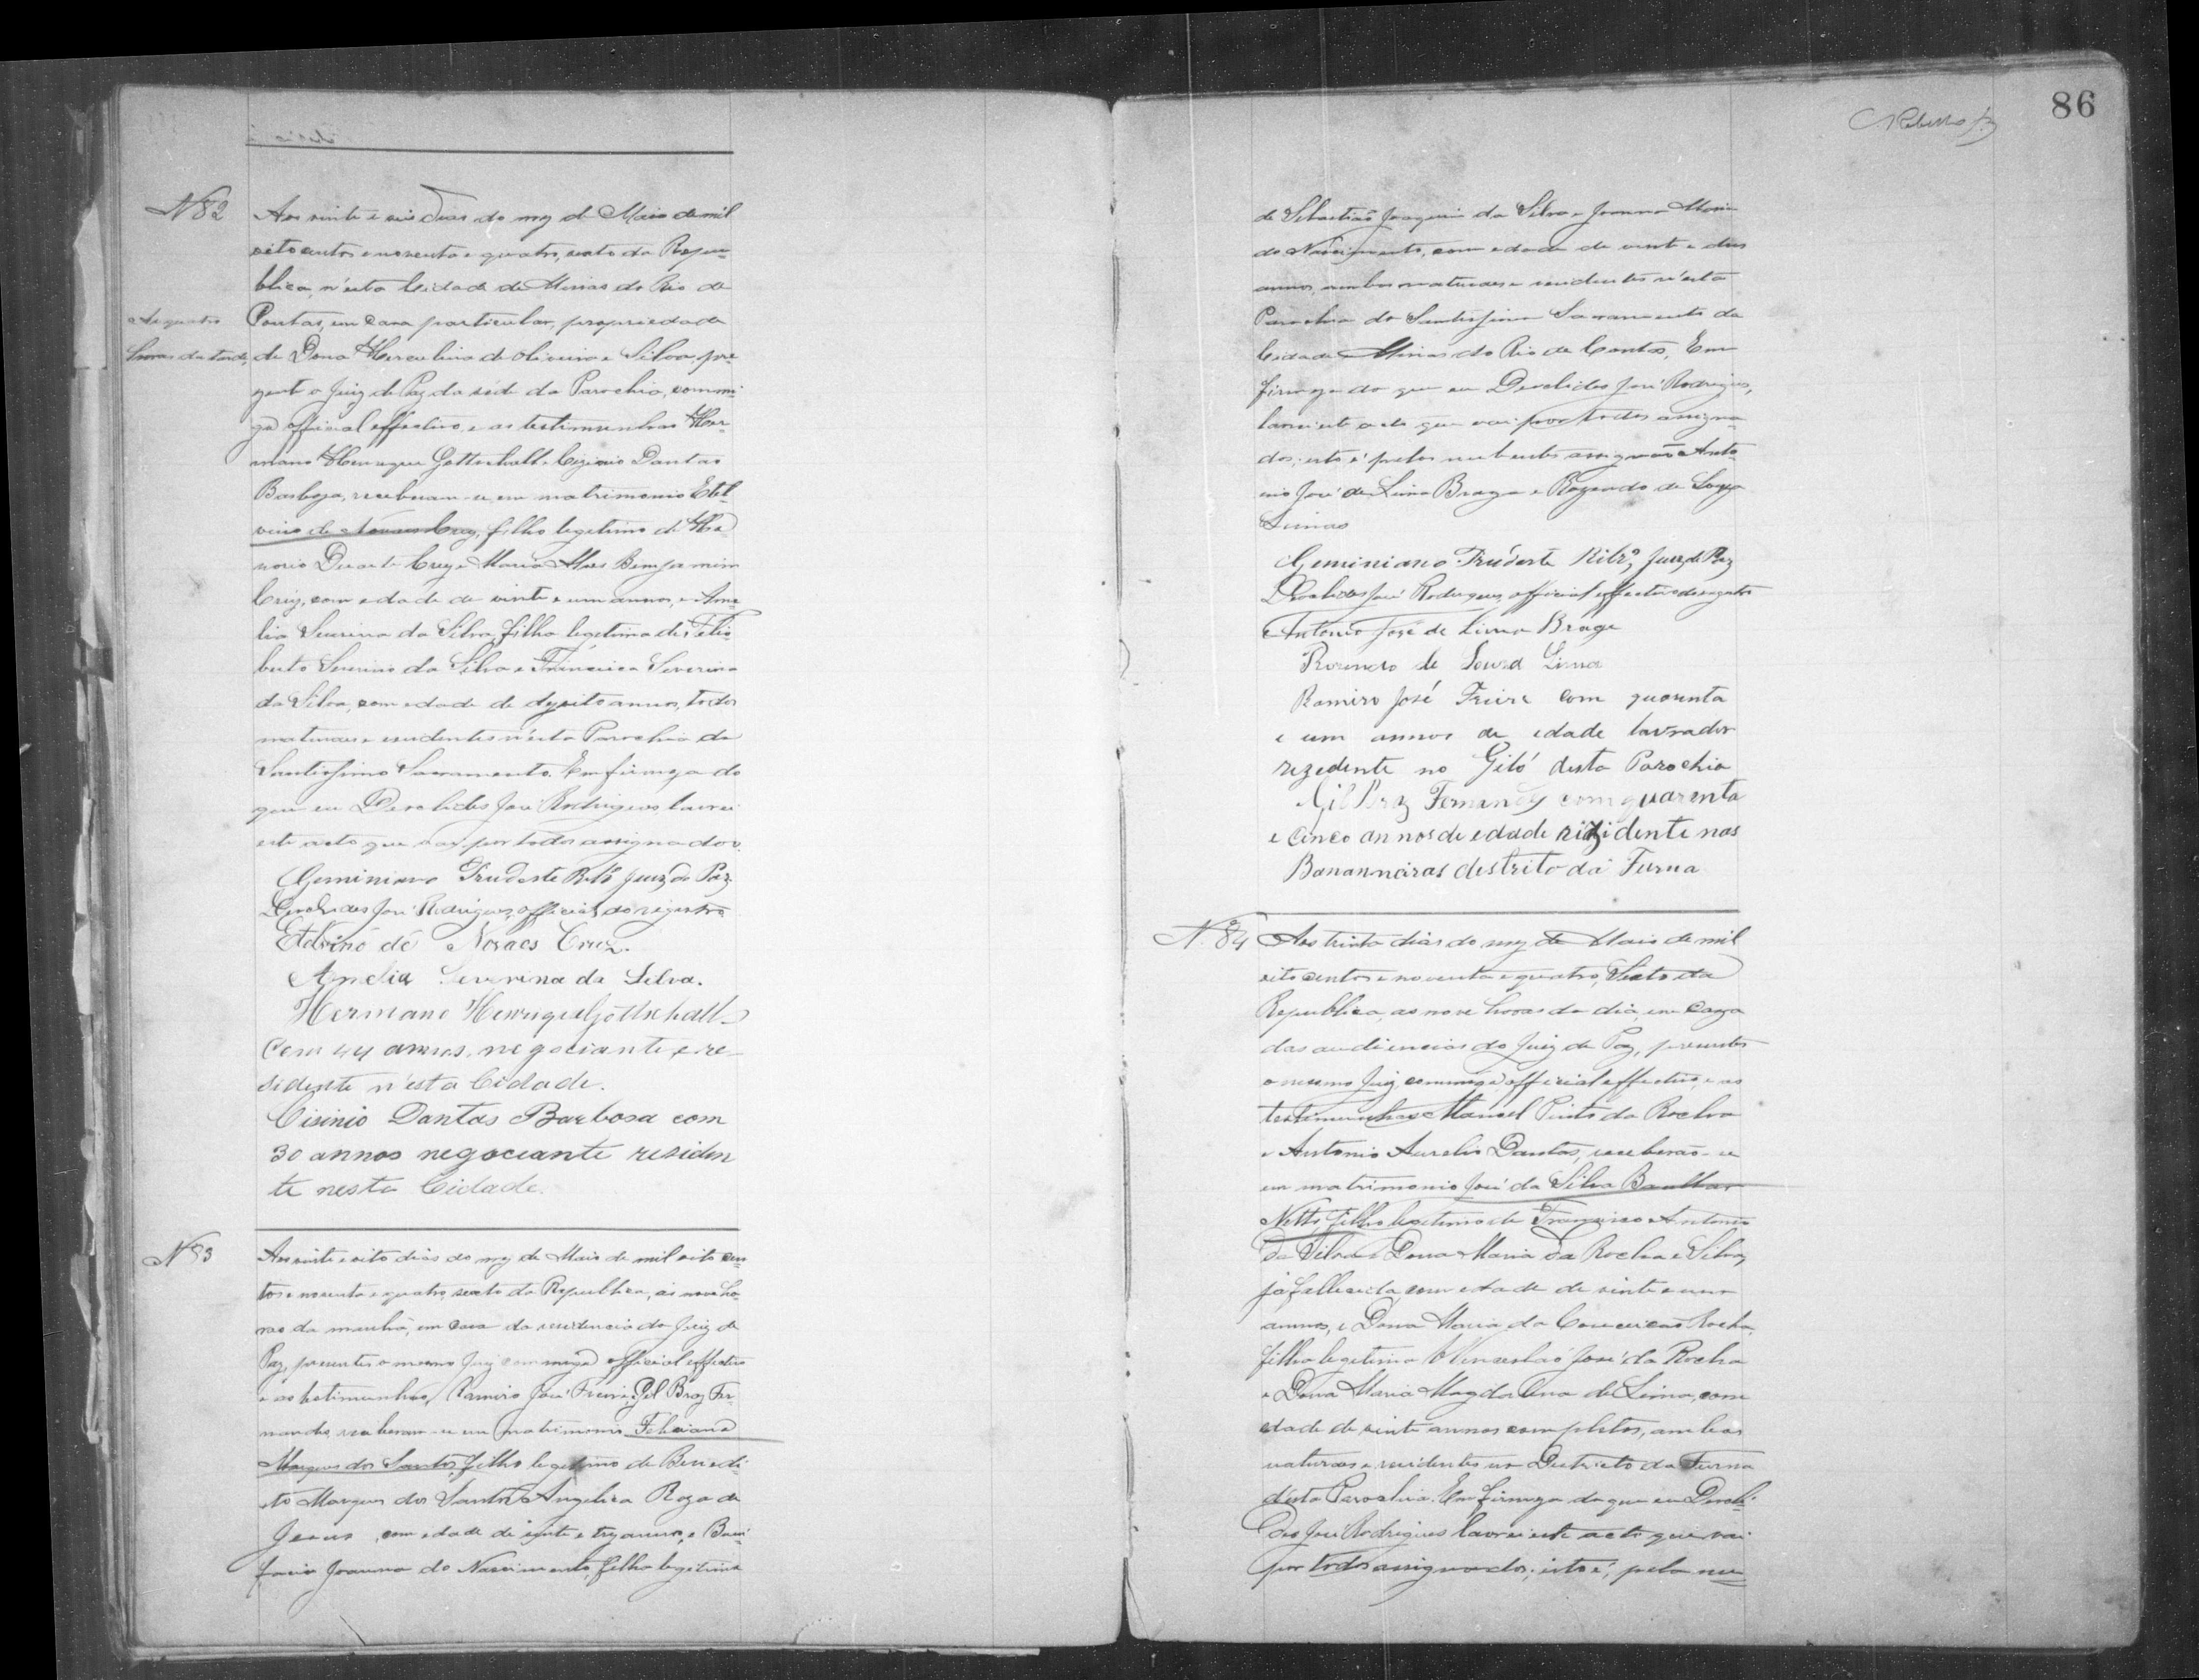 N 82
Aos vinte e seis dias do mez de Maio de mil
oito centos e noventa e quatro, sexto da Repu-
blica, n'esta Cidade de Minas do Rio de
Contas, em casa particular, propriedade
as quatro
horas da tarde,
de Dona Herculina de Oliveira e Silva, pre-
zente o Juiz de Paz da séde da Parochia, commi-
go official effectivo, e as testimunhas Her-
mano Henrique Gottschall e Cizinio Dantas
Barboza, receberam-se em matrimonio Etel-
vino de Novaes Cruz, filho legitimo de Ho-
norio Duarte Cruz e Maria Alves Benjamim
Cruz, com edade de vinte e um annos, e Ame-
lia Severina da Silva, filha legitima de Felis-
berto Severino da Silva e Francisca Severina
da Silva, com edade de dezoito annos, todos
naturaes e residentes n'esta Parochia do
Santissimo Sacramento. Em firmeza do
que eu Deoclides José Rodrigues, lavrei
este acto que vai por todos assignados.
Geminiano Trudente Rib.º Juiz de Paz
Deoclides José Rodrigues, official do registro
Etelvino de Novaes Cruz.
Amelia Severina da Silva.
Hermano Henrique Gottschall
Com 44 annos, negociante e re-
sidente n'esta Cidade.
Cisinio Dantas Barbosa com
30 annos negociante residen
te nesta Cidade.
N 83
Aos vinte e oito dias do mez de Maio de mil oito cen-
tos e noventa e quatro, sexto da Republica, as nove ho-
ras da manhã, em casa da residencia do Juiz de
Paz, presentes o mesmo Juiz commigo official effectivo
e as testimunhas, Ramiro José Freire e Gil Braz Fer-
nandes, receberam-se em matrimonio Feliciano
Marques dos Santos, filho legitimo de Benedi-
cto Marques dos Santos e Angelica Roza de
Jesus, com edade de vinte e trez annos, e Boni-
facia Joanna do Nascimento, filha legitima
86
de Sebastião Joaquim da Silva e Joanna Maria
do Nascimento, com edade de vinte e dous
annos, ambos naturaes e residentes n'esta
Parochia do Santissimo Sacramento da
Cidade Minas do Rio de Contas. Em
firmeza do que eu Deoclides José Rodrigues,
lavrei este acto que vai por todos assigna-
dos; isto é pelos nubentes assignarão Anto-
nio José de Lima Braga e Rozendo de Souza
Lima
Geminiano Trudente Ribr.º Juiz de Paz
Deoclides José Rodrigues, official effectivo do registro
Antonio José de Lima Braga
Rozendo de Souza Lima
Ramiro José Freire com quarenta
e um annos de idade lavrador
rezedente no Gitó desta Parochia
Gil Braz Fernandes com quarenta
e cinco annos de edade rizidente nas
Banannairas destrito da Furna
N. 84
Aos trinta dias do mez de Maio de mil
oito centos e noventa e quatro, Sexto da
Republica, as nove horas do dia, em Caza
das audiencias do Juiz de Paz, presentes
o mesmo Juiz, commigo official effectivo, e as
testimunhas Manoel Pinto da Rocha
e Antonio Aurelio Dantas, receberão-se
em matrimonio José da Silva
Netto, filho legitimo de Francisco Antonio
da Silva e Dona Maria da Rocha e Silva,
já fallecida, com edade de vinte e um
annos, e Dona Maria da Conceição Rocha,
filha legitima Wencesláo José da Rocha
e Dona Maria Magdalena de Lima, com
edade de vinte annos completos, ambos
naturaes e residentes no Districto da Furna
desta Parochia. Em firmeza do que eu Deocli-
des José Rodrigues lavrei este acto que vai
por todos assignados; isto é; pela nu